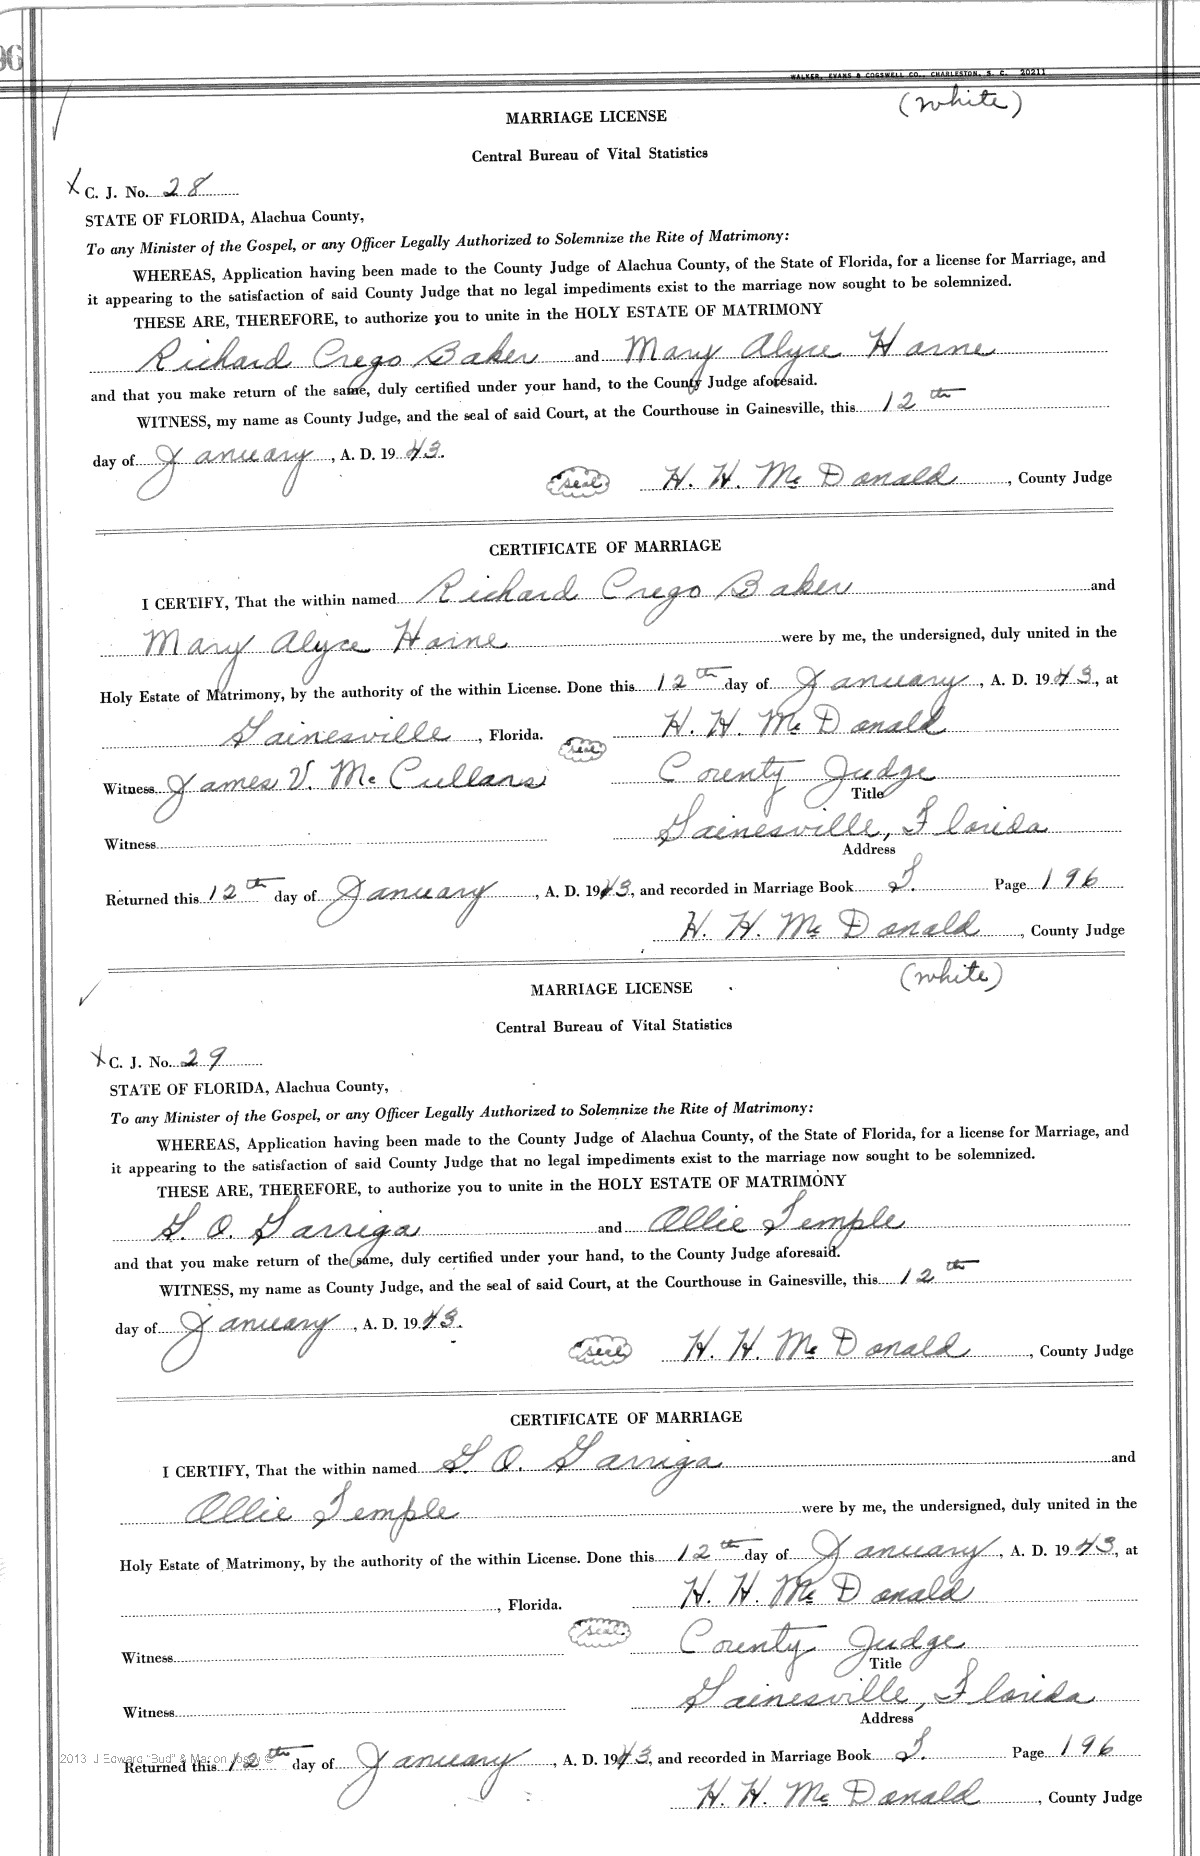 96
WALKER, EVANS & COGSWELL CO., CHARLESTON, S. C. 20211
(White)
MARRIAGE LICENSE
Central Bureau of Vital Statistics
X C. J. No. 28
STATE OF FLORIDA, Alachua County,
To any Minister of the Gospel, or any Officer Legally Authorized to Solemnize the Rite of Matrimony:
WHEREAS, Application having been made to the County Judge of Alachua County, of the State of Florida, for a license for Marriage, and
it appearing to the satisfaction of said County Judge that no legal impediments exist to the marriage now sought to be solemnized.
THESE ARE, THEREFORE, to authorize you to unite in the HOLY ESTATE OF MATRIMONY
Richard Crego Baker and Mary Alyce Horne
and that you make return of the same, duly certified under your hand, to the County Judge aforesaid.
WITNESS, my name as County Judge, and the seal of said Court, at the Courthouse in Gainesville, this 12th
day of January, A. D. 1943.
seal H. H. McDonald, County Judge
CERTIFICATE OF MARRIAGE
I CERTIFY, That the within named Richard Crego Baker and
Mary Alyce Horne were by me, the undersigned, duly united in the
Holy Estate of Matrimony, by the authority of the within License. Done this 12th day of January, A. D. 1943, at
Gainesville, Florida. seal H. H. McDonald
Witness James V. McCullars County Judge
Title
Witness Gainesville, Florida
Address
Returned this 12th day of January, A. D. 1943, and recorded in Marriage Book T. Page 196
H. H. McDonald, County Judge
(White)
MARRIAGE LICENSE
Central Bureau of Vital Statistics
X C. J. No. 29
STATE OF FLORIDA, Alachua County,
To any Minister of the Gospel, or any Officer Legally Authorized to Solemnize the Rite of Matrimony:
WHEREAS, Application having been made to the County Judge of Alachua County, of the State of Florida, for a license for Marriage, and
it appearing to the satisfaction of said County Judge that no legal impediments exist to the marriage now sought to be solemnized.
THESE ARE, THEREFORE, to authorize you to unite in the HOLY ESTATE OF MATRIMONY
G. O. Garriga and Ollie Temple
and that you make return of the same, duly certified under your hand, to the County Judge aforesaid.
WITNESS, my name as County Judge, and the seal of said Court, at the Courthouse in Gainesville, this 12th
day of January, A. D. 1943.
seal H. H. McDonald, County Judge
CERTIFICATE OF MARRIAGE
I CERTIFY, That the within named G. O. Garriga and
Ollie Temple were by me, the undersigned, duly united in the
Holy Estate of Matrimony, by the authority of the within License. Done this 12th day of January, A. D. 1943, at
, Florida. H. H. McDonald
seal County Judge
Witness Title
Witness Gainesville, Florida
Address
2013 J Edward "Bud" & Marion Josey ©
Returned this 12th day of January, A. D. 1943, and recorded in Marriage Book T. Page 196
H. H. McDonald, County Judge